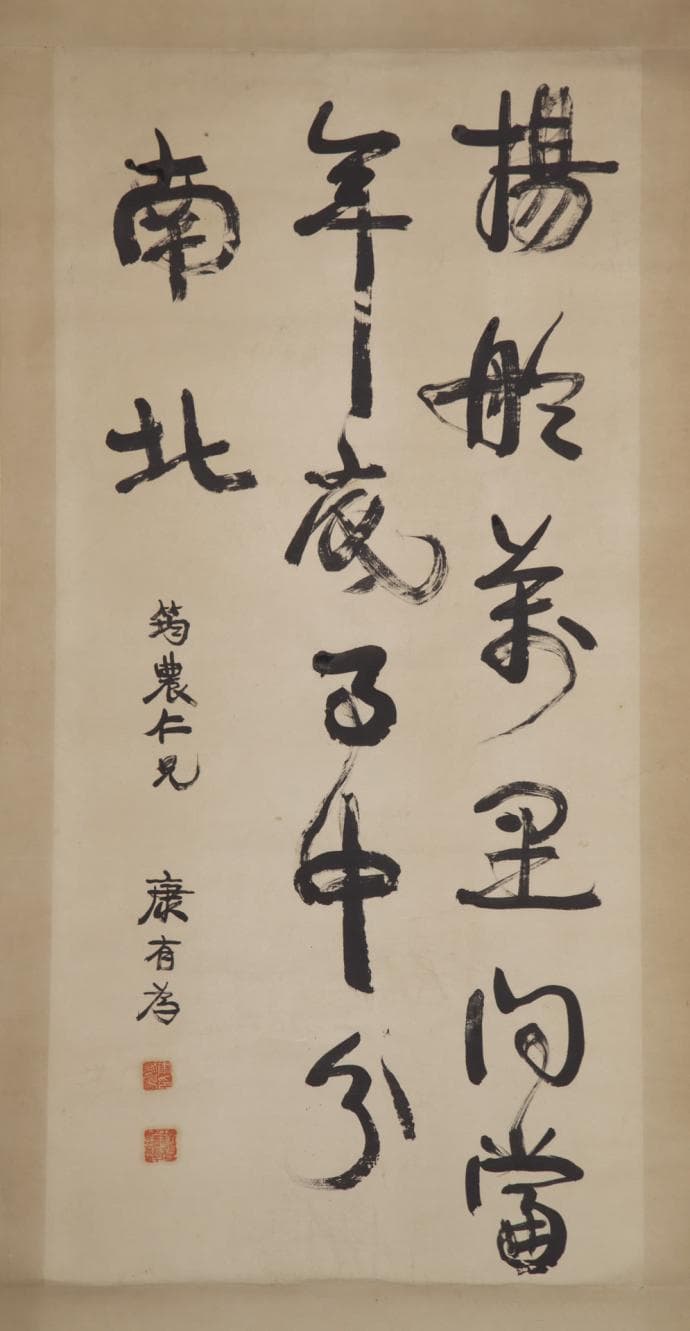 揚舲萬里問當
年底事中分
南北
筠農仁兄 康有為